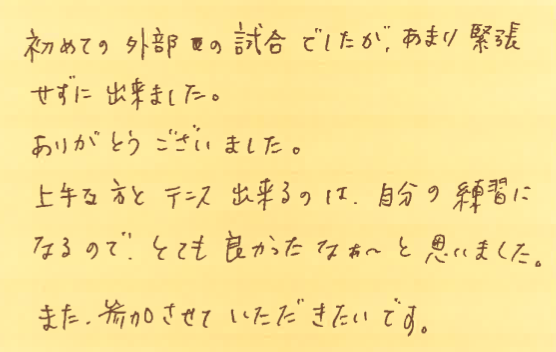 初めての外部の試合でしたが、あまり緊張
せずに出来ました。
ありがとうございました。
上手な方とテニス出来るのは、自分の練習に
なるので、とても良かったなぁ～と思いました。
また、参加させていただきたいです。